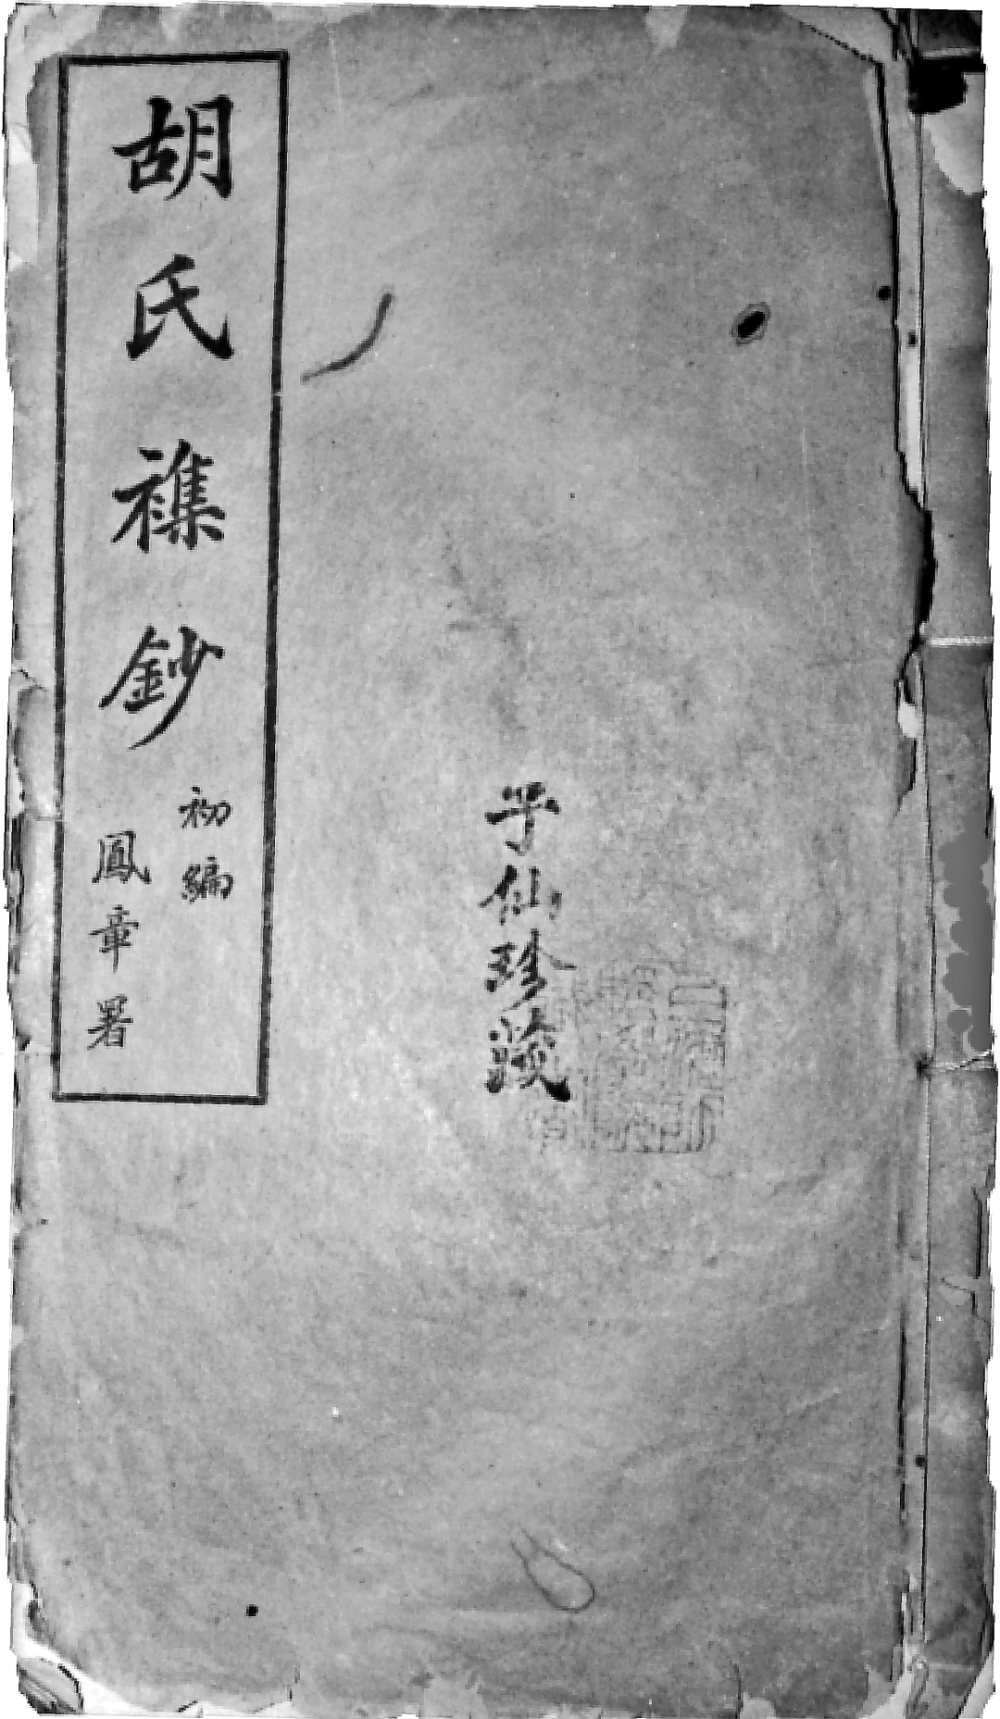 胡氏襍鈔
初編
鳳章署
仙珍藏